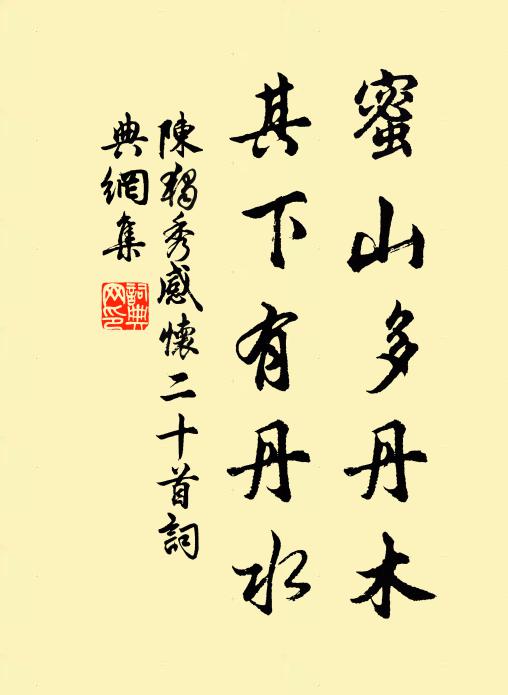 蜜山多丹木
其下有丹水
陳獨秀感懷二十首詞
典網集
詞典網印